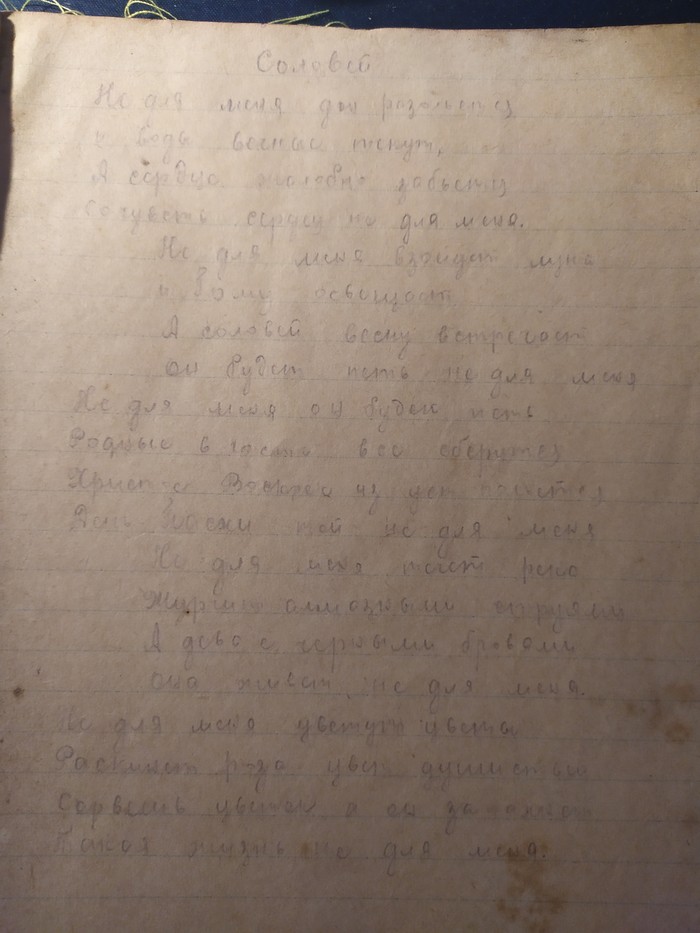 Соловей
Не для меня дон разольется
и воды весные текут,
А сердцо жалобно забьется
сердец не для меня.
Не для меня взойдет луна
и освещает
А соловей весну встречает
он будет петь не для меня
Не для меня он будет петь
Родные в все сберутся
Христос Воскрес из уст польется
День Пасхи той не для меня
Не для меня течет река
журчит алмазными струями
А дева с черными бровями
она живет не для меня.
Не для меня цветут цветы
роза цвет душистый
Сорвешь цветок а он завянет
Такая жизнь не для меня.